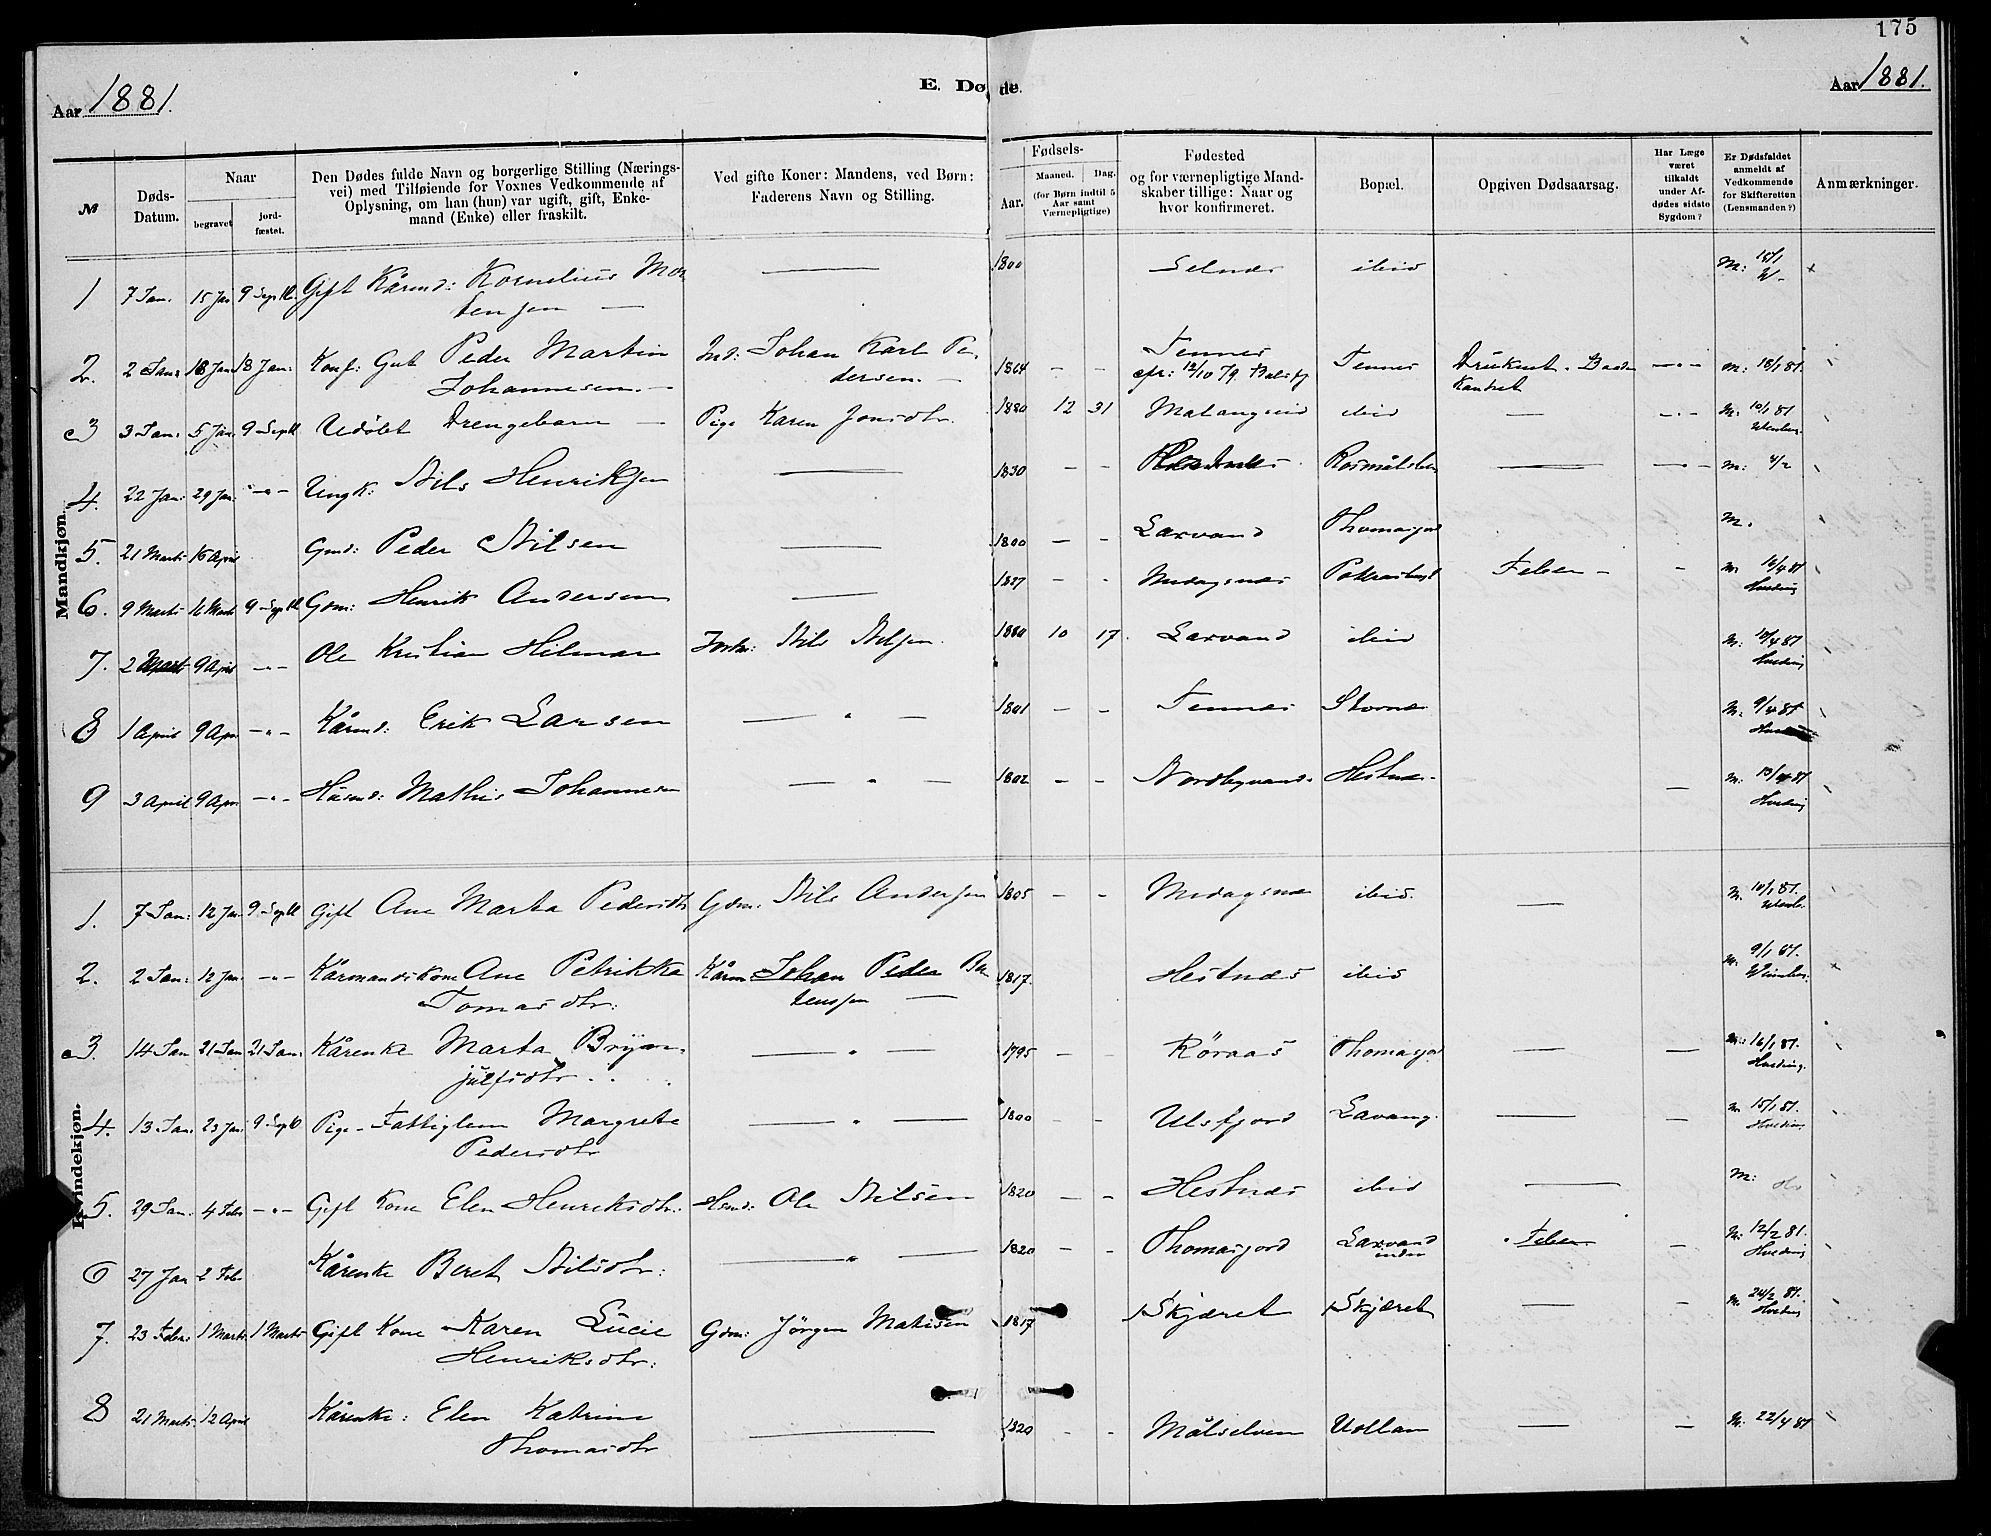 175
Aar 1881.
E. Døde.
Aar 1881.
№
Døds-
Datum.
Naar
begravet
jord-
fæstet.
Den Dødes fulde Navn og borgerlige Stilling (Nærings-
vei) med Tilføiende for Voxnes Vedkommende af
Oplysning, om han (hun) var ugift, gift, Enke-
mand (Enke) eller fraskilt.
Ved gifte Koner: Mandens, ved Børn:
Faderens Navn og Stilling.
Fødsels-
Aar.
Maaned. Dag.
(for Børn indtil 5
Aar samt
Værnepligtige)
Fødested
og for værnepligtige Mand-
skaber tillige: Naar og
hvor konfirmeret.
Bopæl.
Opgiven Dødsaarsag.
Har Læge
været
tilkaldt
under Af-
dødes sidste
Sygdom?
Er Dødsfaldet
anmeldt af
Vedkommende
for Skifteretten
(Lensmanden?)
Anmærkninger.
Mandkjøn.
1 7 Jan. 15 Jan 9 Septb. Gift Kårmd: Kornelius Mor- — 1800 Selnæs ibid M: 15/1
tensen —
2. 2 Jan. 18 Jan 18 Jan. Konf: Gut Peder Martin Ind: Johan Karl Pe- 1864 - - Tennes Tennes Druknet. M: 18/1 81.
Johannesen. — dersen. — cfr: 12/10 79. Balsfj Kantret
3 3 Jan: 5 Jan. 9 Septb Udøbt Drengebarn — Pige Karen Jonsdtr. 1880 12 31 Malangseid ibid — M: 10/1 81
4. 22 Jan: 29 Jan. -"- Ungk: Nils Henriksen — 1830 - - Rosmålslien — M: 4/2
5. 21 Marts 16 April Gmd: Peder Nilsen — 1800 - - Larvand Thomasjord M.
6. 9 Marts 16 Marts 9 Septb Gdm: Henrik Andersen — 1827 - - Medagsnæs Feber - - M: 16/4 81
Hveding
7. 2 9 April -"- Ole Kristian Hilmar Nils Nilsen. 1880 10 17. Larvand ibid M: 10/4 81
Hveding
8 1 April 9 Apr -"- Kårmd: Erik Larsen — " — 1801 - - Tennes Stornæs M: 9/4 81
9 3 April 9 Apr -"- Husmd: Mathis Johannesen — " — 1802 - - Nordbynæs. Hestnæs. — M: 13/4 81
Hveding
Kvindekjøn.
1. 7 Jan: 12 Jan 9 Septb Gift Ane Marta Pedersdtr Gdm: Nils Andersen 1805 - - Medagsnæs ibid. — M. 10/1 81.
2. 2 Jan: 12 Jan. -"- Kårmandskone Ane Petrikka Kårm Johan Peder Be- 1817. Hestnæs ibid M. 9/1 81.
Tomasdtr. rensen —
3. 14 Jan 21 Jan 21 Jan. Kårenke Marta Brynn- — " — 1795 - - Röraas Thomasjord — — M: 16/1 81.
julfsdtr. Hveding.
4. 13. Jan. 23 Jan. 9 Septb Pige - Fattiglem Margrete — " — 1800 - - Ulsfjord Lavang. — — M 15/1 81.
Pedersdtr Hveding
5. 29 Jan. 4 Febr -"- Gift Kone Elen Henriksdtr. Hsmd: Ole Nilsen 1820 - - Hestnæs ibid — M: do
6 27 Jan 2 Febr Kårenke Beret Nilsdtr. — " — 1820 - - Thomasjord Larvand Feber — M: 12/2 81.
indre Hveding
7. 23 Febr: 1 Marts 1 Marts Gift Kone Karen Lucie Gdm: Jørgen Matisen 1817 Skjæret Skjæret — — M. 24/2 81.
Henriksdtr. Hveding
8 21 Marts 12 April Kårenke: Elen Katrine — 1820 - - Målselven Vollan — — M: 22/4 81
Thomasdtr